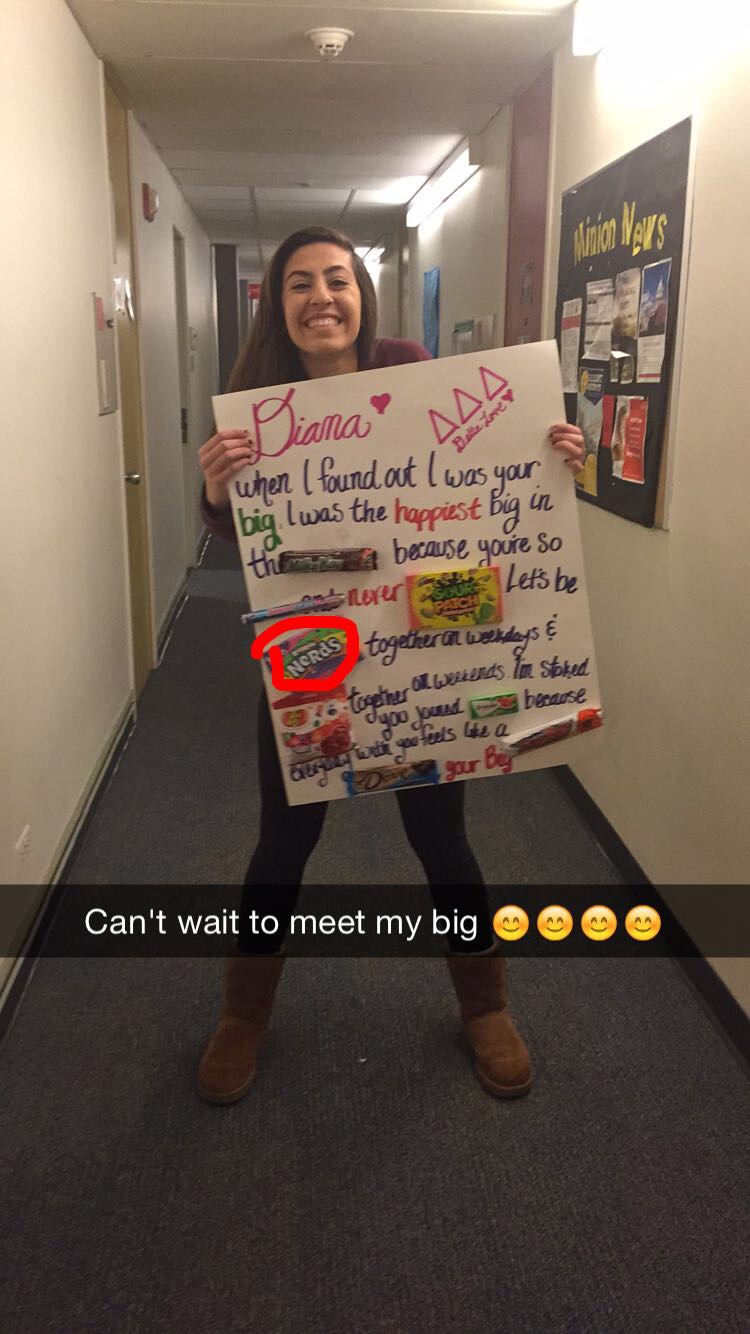 Minion News
Diana
Delta Love
when I found out I was your
big, I was the happiest Big in
the Milky Way because you're so
and never SOUR PATCH Let's be
NERDS together on weekdays &
together on weekends. I'm stoked
you joined because
everyday with you feels like a
Dove your Big
Can't wait to meet my big 😊😊😊😊